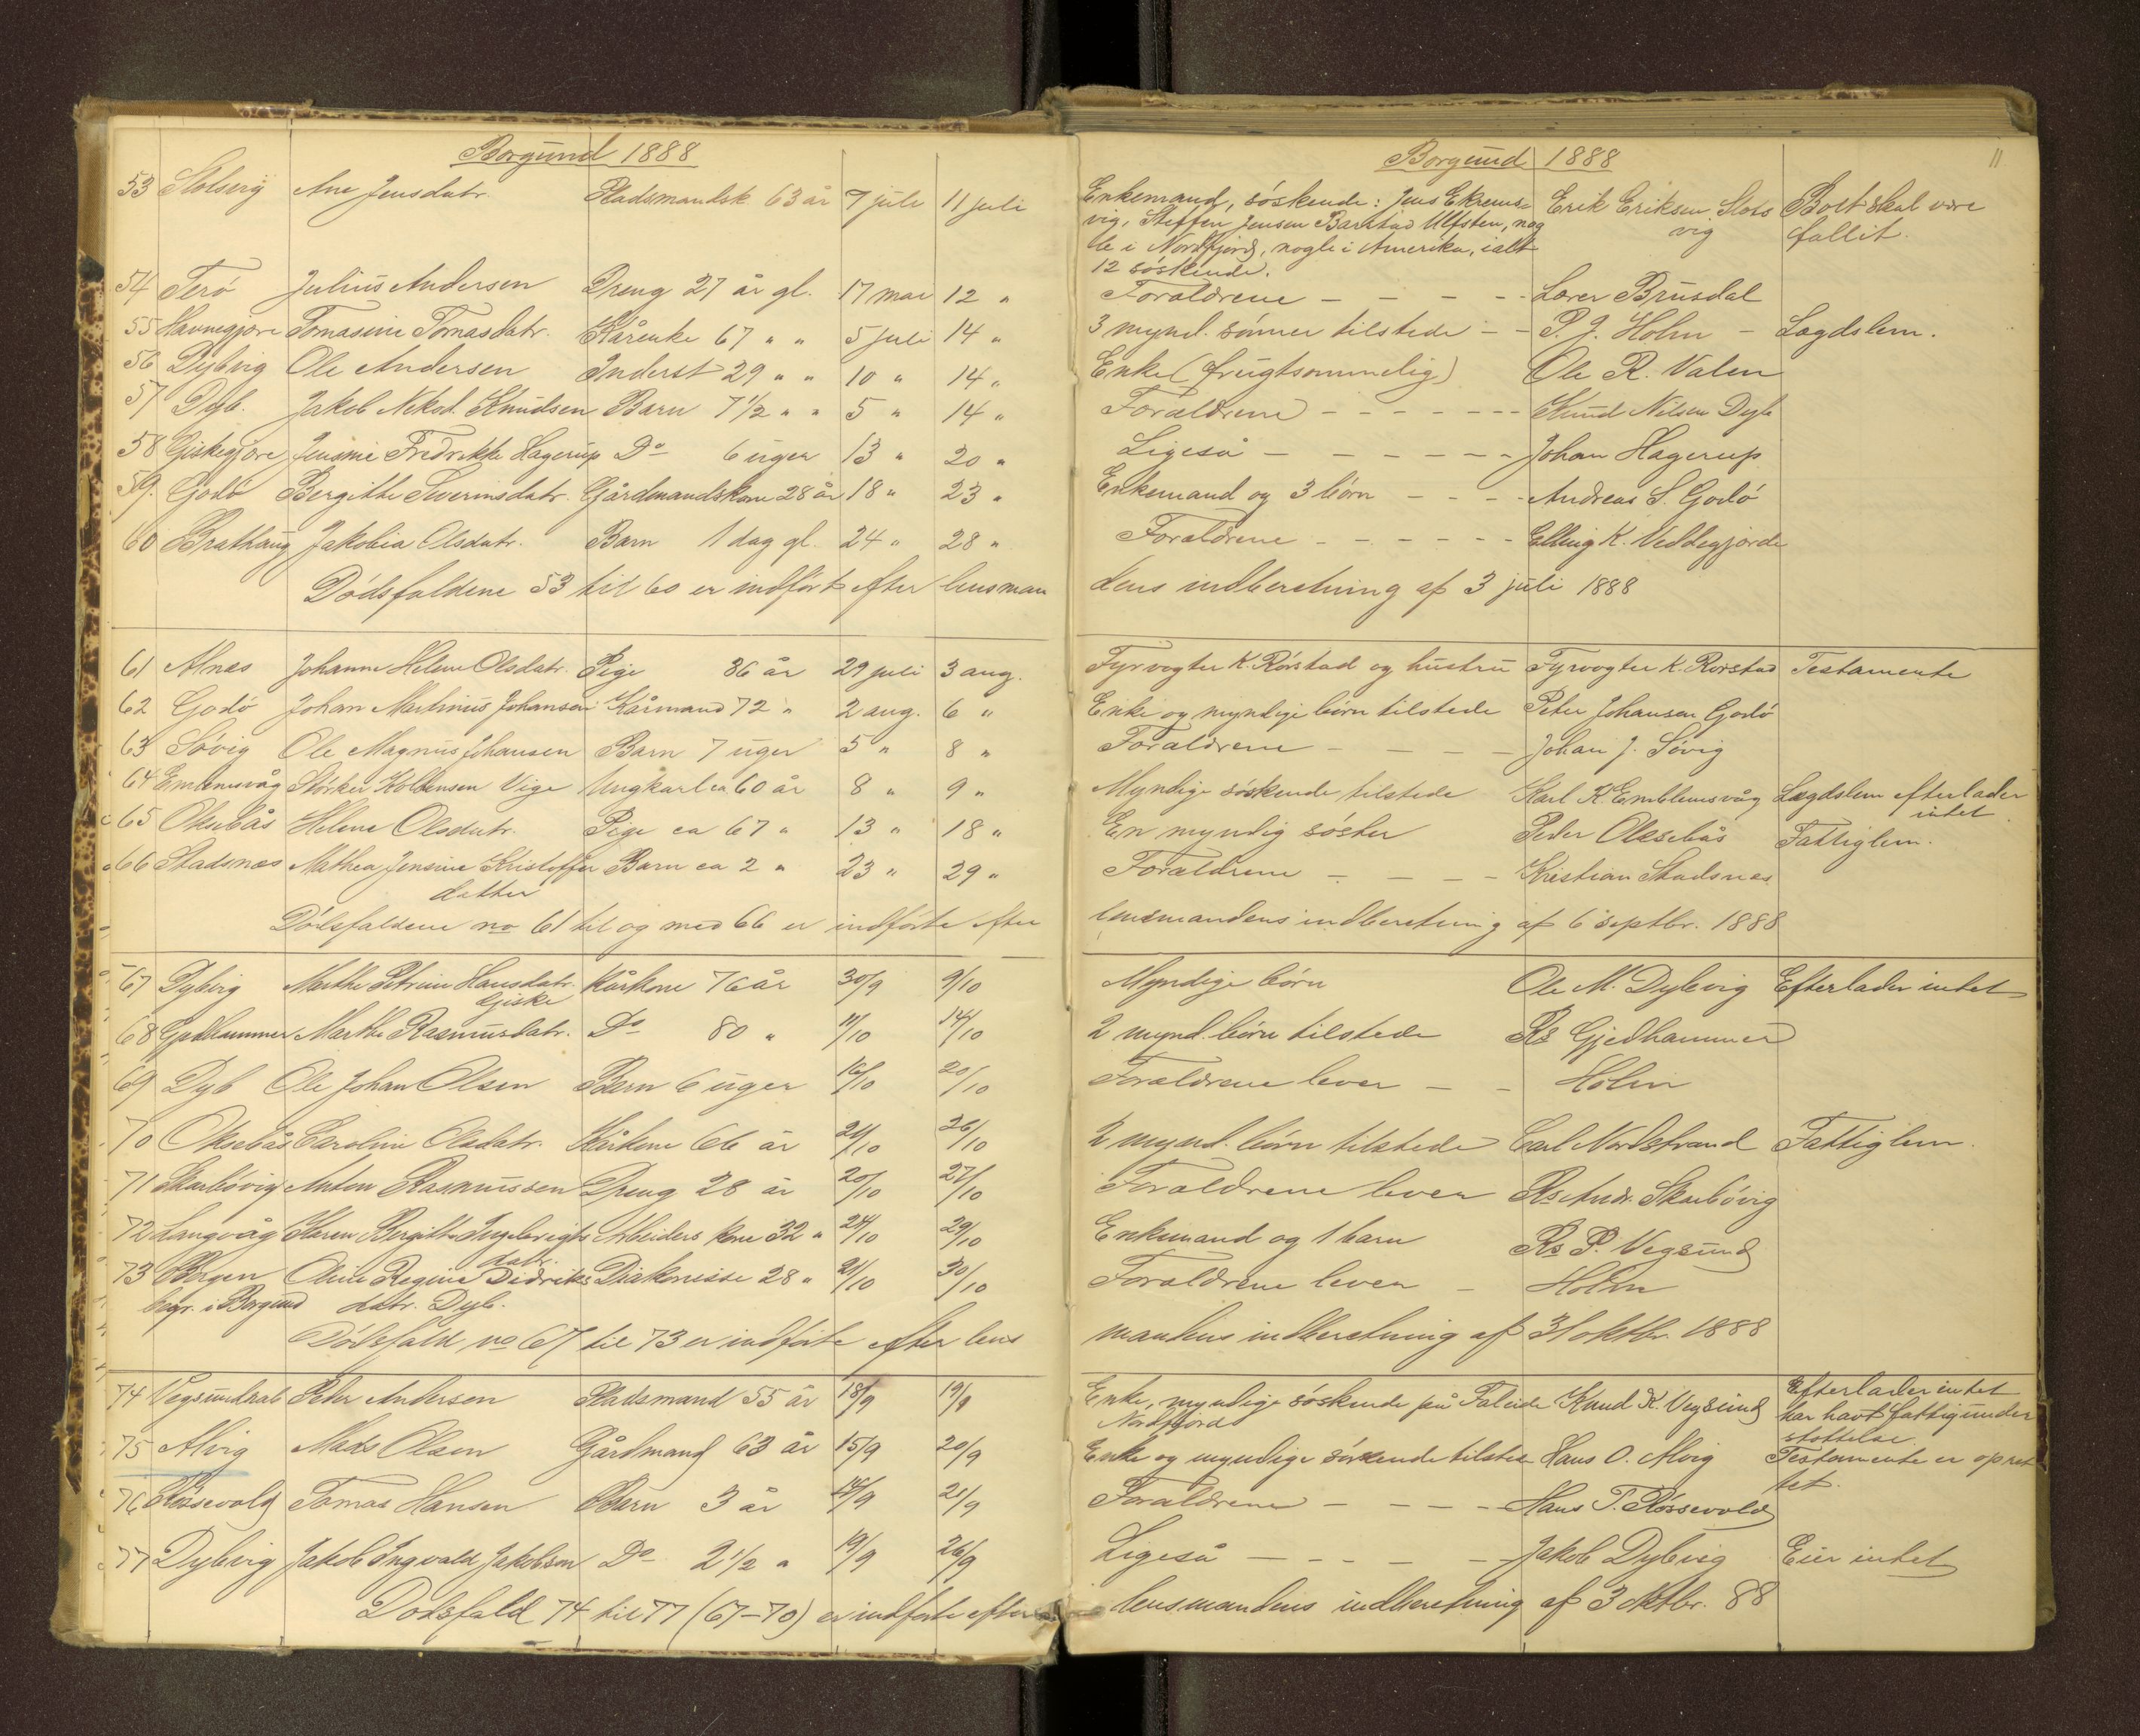 Borgund 1888
53 Slotsvig Ane Jensdatr. Pladsmandsk. 63 år 7 juli 11 juli
54 Terö Julius Andersen Dreng 27 år gl. 17 mai 12 "
55 Havnegjore Tomasine Tomasdatr. Kårenke 67 " " 5 juli 14 "
56 Dybvig Ole Andersen Inderst 29 " " 10 " 14 "
57 Dyb. Jakob Nekod. Knudsen Barn 7 1/2 " " 5 " 14 "
58 Giskegjøre Jensine Fredrikke Hagerup Do 6 uger 13 " 20 "
59. Godö Bergitte Severinsdatr. Gårdmandskone 28 år 18 " 23 "
60 Brathaug Jakobia Olsdatr. Barn 1 dag gl. 24 " 28 "
Dödsfaldene 53 til 60 er indfört efter lensman
61 Alnæs Johanne Helene Olsdatr. Pige 36 år 29 juli 3 aug.
62 Godö Johan Martinus Johansen Kårmand 72 " 2 aug. 6 "
63 Sövig Ole Magnus Johansen Barn 7 uger 5 " 8 "
64 Emblemsvåg Störker Kolbensen Vige Ungkarl ca 60 år 8 " 9 "
65 Oksebås Helene Olsdatr. Pige ca 67 " 13 " 18 "
66 Stadsnes Mathea Jensine Kristoffer Barn ca 2 " 23 " 29 "
datter
Dödsfaldene no 61 til og med 66 er indförte efter
67 Dybvig Marthe Petrine Hansdatr. Kårkone 76 år 30/9 9/10
Giske
68 Gjedhammer Marthe Rasmusdatr. Do 80 " 11/10 14/10
69 Dyb Ole Johan Olsen Barn 6 uger 16/10 20/10
70 Oksebås Caroline Olsdatr. Kårkone 66 år 21/10 26/10
71 Skarbövig Anton Rasmussen Dreng 28 år 20/10 27/10
72 Langvåg Karen Bergitte Ingebrigts Arbeiders kone 32 " 24/10 29/10
datr.
73 Bergen Oline Regine Didriks Diakonisse 28 " 21/10 30/10
begr. i Borgund datr. Dyb.
Dödsfald no 67 til 73 er indförte efter lens
74 Vegsundsal Peter Andersen Pladsmand 55 år 18/9 19/9
75 Alvig Mads Olsen Gårdmand 63 år 15/9 20/9
76 Røssevold Tomas Hansen Barn 3 år 14/9 21/9
77 Dybvig Jakob Ingvald Jakobsen Do 2 1/2 " 19/9 26/9
Dödsfald 74 til 77 (67-70) er indförte efter
Borgund 1888 11
Enkemand, söskende: Jens Ekrems= Erik Eriksen Slots Boet skal være
vig, Steffen Jensen Barstad Ulfsten, nog vig fallit.
le i Nordfjord, nogle i Amerika, ialt
12 söskende.
Forældrene - - - - Lærer Brusdal
3 mynd. sönner tilstede - - P. J. Holm - Lægdslem.
Enke (frugtsommelig) Ole R. Valen
Forældrene - - - - Knud Nilsen Dyb
Ligeså - - - - Johan Hagerup
Enkemand og 3 börn - - - Andreas S. Godö
Forældrene - - - - Elling K. Veddegjerde
dens indberetning af 3 juli 1888
Fyrvogter K. Rörstad og hustru Fyrvogter K. Rörstad Testamente
Enke og myndige börn tilstede Peter Johansen Godö
Forældrene - - - - Johan J. Sövig
Myndige söskende tilstede Karl K. Emblemsvåg Lægdslem efterlader
intet
En myndig söster Peder Oksebås Fattiglem.
Forældrene - - - - Kristian Stadsnes
lensmandens indberetning af 6 septbr. 1888
Myndige börn Ole M. Dybvig Efterlader intet
2 mynd. börn tilstede Rs Gjedhammer
Forældrene lever - - Holm
2 mynd. börn tilstede Carl Nordstrand Fattiglem.
Forældrene lever Rs Andr. Skarbövig
Enkemand og 1 barn Rs P. Vegsund
Forældrene lever - Holm
mandens indberetning af 31 oktbr. 1888
Enke, myndige söskende på Faleide Knud K. Vegsund Efterlader intet
Nordfjord har havt fattigunder
støttelse.
Enke og myndige söskende tilstede Hans O. Alvig Testamente er opret
tet.
Forældrene - - - - Hans T. Røssevold
Ligeså - - - - Jakob Dybvig Eier intet
lensmandens indberetning af 3 oktbr. 88